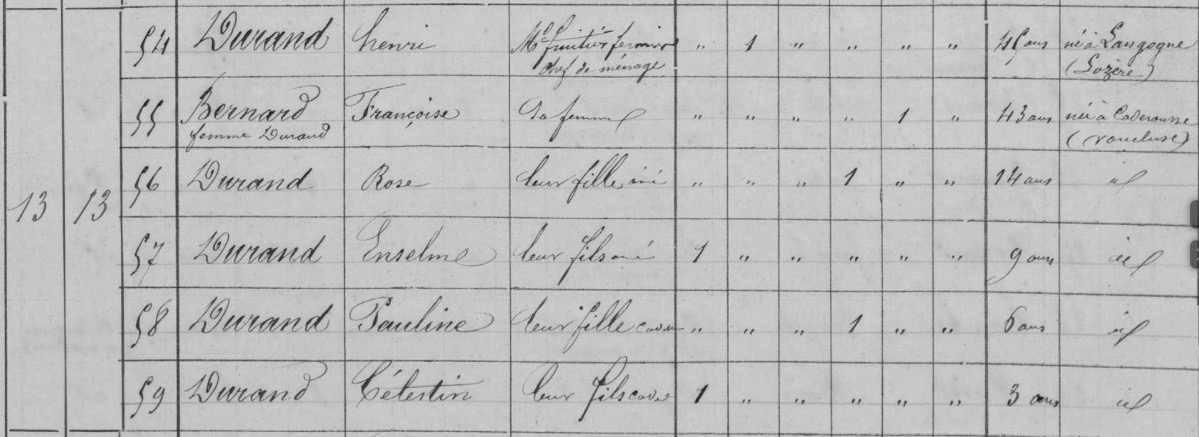 13 13
54 Durand henri Md fruitier fermier " 1 " " " " 45 ans né à Langogne
chef de ménage (Lozère)
55 Bernard Françoise Sa femme " " " " 1 " 43 ans née à Caderousse
femme Durand (Vaucluse)
56 Durand Rose leur fille " " " 1 " " 14 ans id
57 Durand Enselme leur fils 1 " " " " " 9 ans id
58 Durand Pauline leur fille " " " 1 " " 6 ans id
59 Durand Célestin leur fils cadet 1 " " " " " 3 ans id